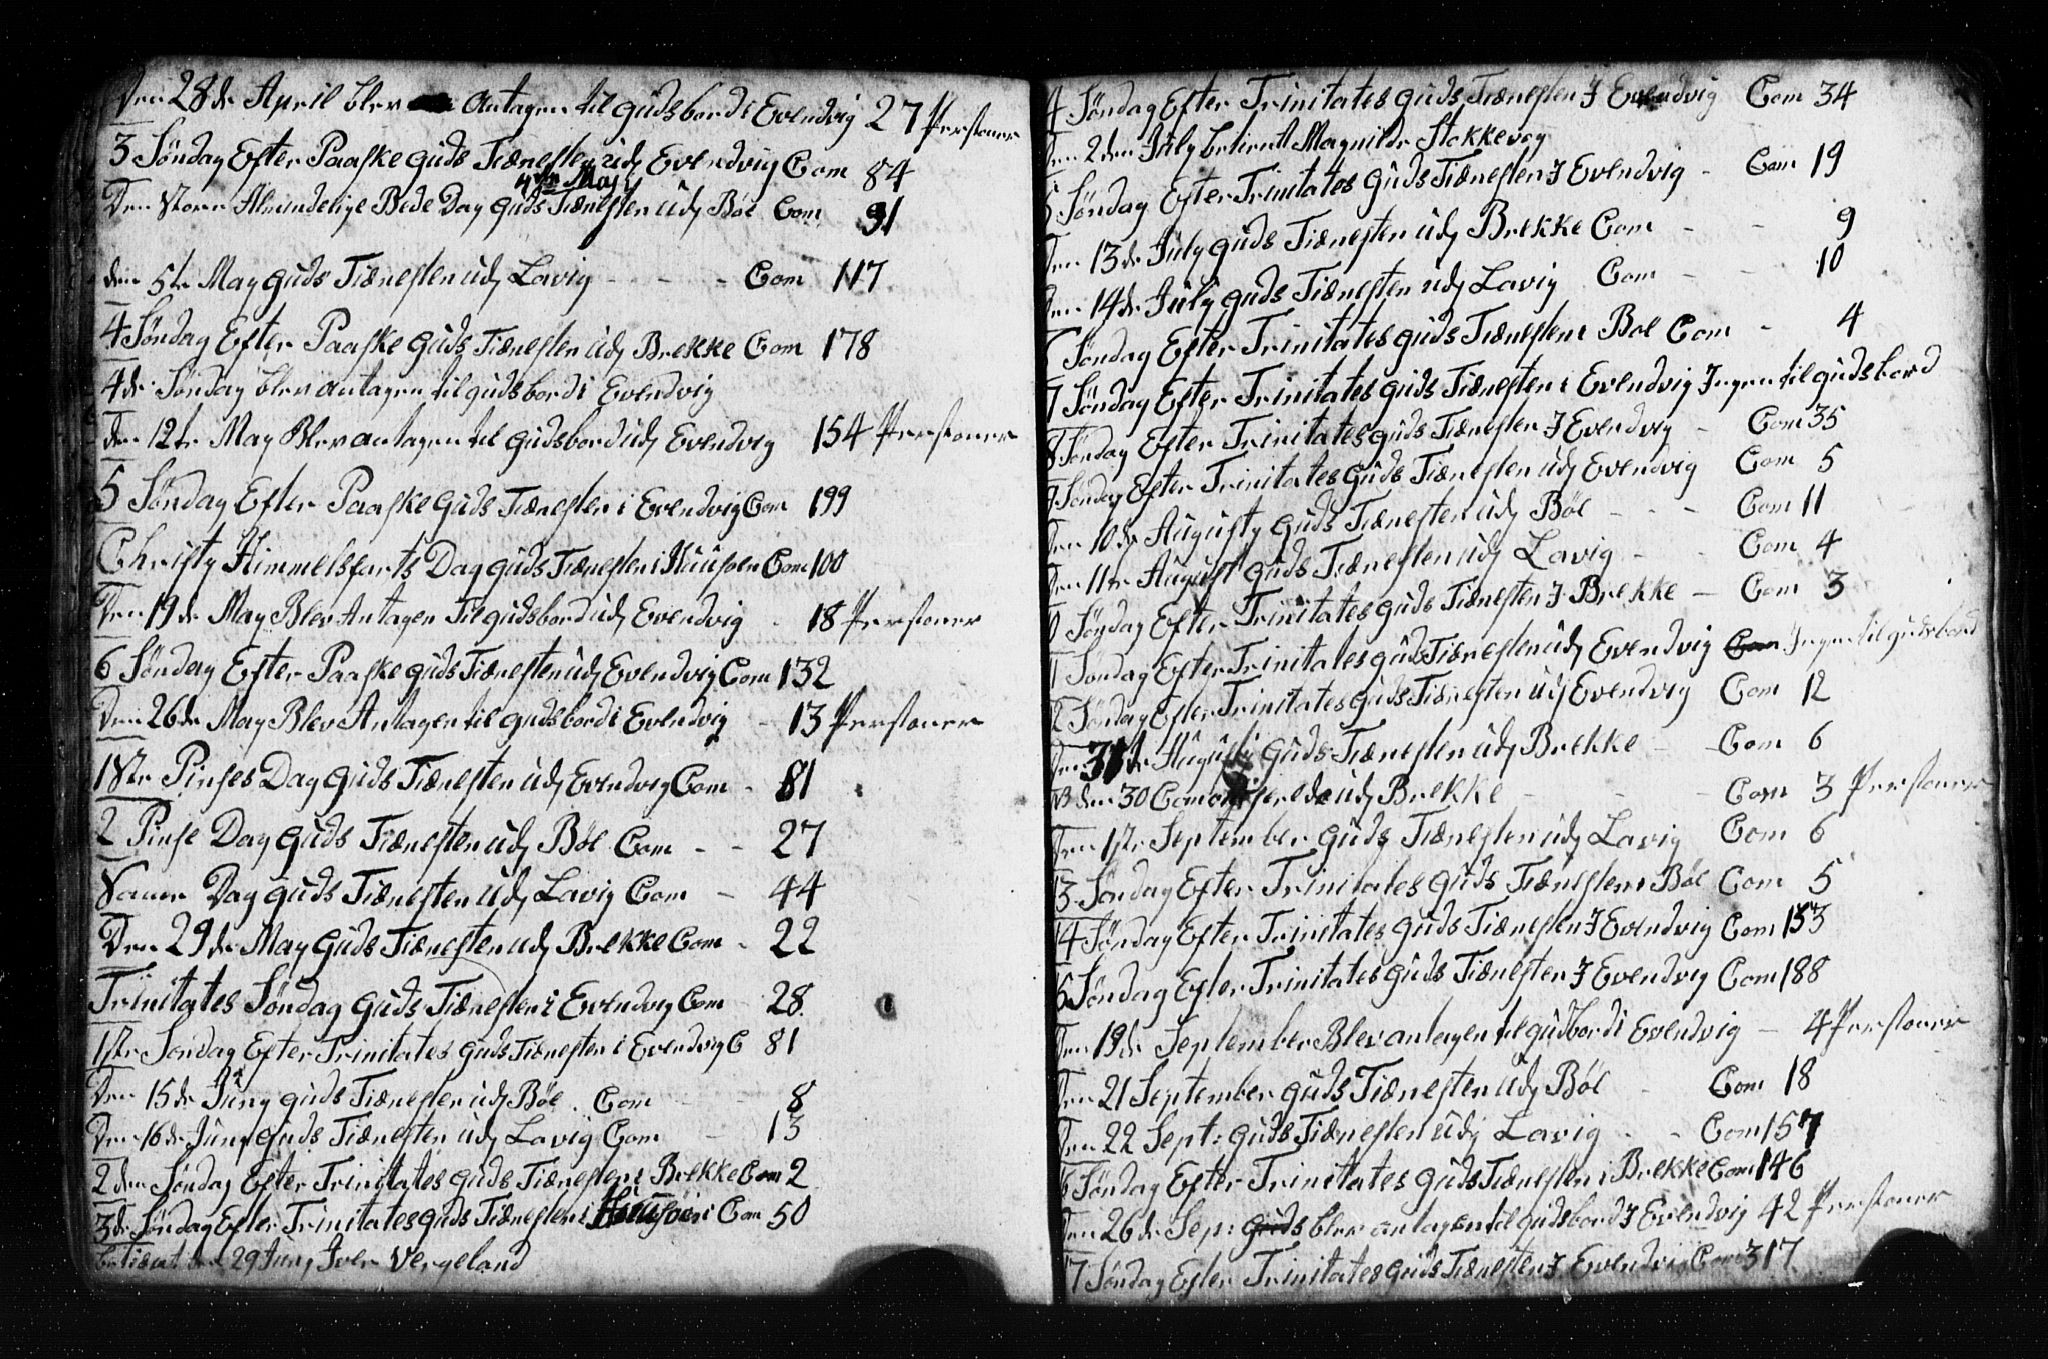 Den 28de April blev Antagen til gudsbord i Evendvig 27 Personer
3 Søndag Efter Paaske Guds Tiænesten udj Evendvig Com 84
4de Maj
Den Store Almindelige Bede Dag Guds Tiænesten udj Böe Com 91
den 5te May Guds Tiænesten udj Lavig - - - - Com 117
4 Søndag Efter Paaske Guds Tiænesten udj Brekke Com 178
4de Søndag blev antagen til gudsbord i Evendvig
den 12te May Blev antagen til gudsbord udj Evendvig 154 Personer
5 Søndag Efter Paaske Guds Tiænesten i Evendvig Com 199
Christy Himmelfarts Dag Guds Tiænesten i Huusøen Com 100
Den 19de May Blev Antagen til gudsbord udj Evendvig - 18 Personer
6 Søndag Efter Paaske Guds Tiænesten udj Evendvig Com 132
Den 26de May Blev Antagen til gudsbord i Evendvig - 13 Personer
1ste Pinses Dag Guds Tiænesten udj Evendvig Com - 81
2 Pinse Dag Guds Tiænesten udj Böe Com - - 27
Samme Dag Guds Tiænesten udj Lavig Com - 44
Den 29de May Guds Tiænesten udj Brekke Com - 22
Trinitates Søndag Guds Tiænesten i Evendvig Com 28
1ste Søndag Efter Trinitates Guds Tiænesten i Evendvig C 81
Den 15de Juny Guds Tiænesten udj Böe. Com - - 8
Den 16de Juny Guds Tiænesten udj Lavig Com - 13
2den Søndag Efter Trinitates Guds Tiænesten i Brekke Com 2
3de Søndag Efter Trinitates Guds Tiænesten i Huusøen Com 50
betiænt den 29 Juny Iver Vergeland
4 Søndag Efter Trinitates Guds Tiænesten J Evendvig Com 34
Den 2den July betient Magnilde Stokkevog
5 Søndag Efter Trinitates Guds Tiænesten J Evendvig - Com 19
Den 13de July Guds Tiænesten udj Brekke Com - - 9
Den 14de July Guds Tiænesten udj Lavig Com - - 10
Søndag Efter Trinitates Guds Tiænesten i Böe Com - 4
7 Søndag Efter Trinitates Guds Tiænesten i Evendvig Ingen til gudsbord
8 Søndag Efter Trinitates Guds Tiænesten J Evendvig - Com 35
9 Søndag Efter Trinitates Guds Tiænesten udj Evendvig Com 5
Den 10de Augusty Guds Tiænesten udj Böe - - - Com 11
Den 11te August Guds Tiænesten udj Lavig - - Com 4
0 Søndag Efter Trinitates Guds Tiænesten J Brekke - Com 3
1 Søndag Efter Trinitates Guds Tiænesten udj Evendvig Com Ingen til gudsbord
2 Søndag Efter Trinitates Guds Tiænesten udj Evendvig Com 12
Den 31te Augusti Guds Tiænesten udj Brekke - - Com 6
NB den 30 udj Brekke - - - Com 3 Personer
Den 1ste September Guds Tiænesten udj Lavig Com 6
13 Søndag Efter Trinitates Guds Tiænesten i Böe Com 5
14 Søndag Efter Trinitates Guds Tiænesten J Evendvig Com 153
5 Søndag Efter Trinitates Guds Tiænesten J Evendvig Com 188
Den 19de September Blev antagen til gudbord i Evendvig - 4 Personer
Den 21 September Guds Tiænesten udj Böe - Com 18
Den 22 Sept: Guds Tiænesten udj Lavig - - Com 157
6 Søndag Efter Trinitates Guds Tiænesten i Brekke Com 146
Den 26de Sep: Guds blev antagen til gudsbord J Evendvig 42 Personer
17 Søndag Efter Trinitates Guds Tiænesten J Evendvig Com 317